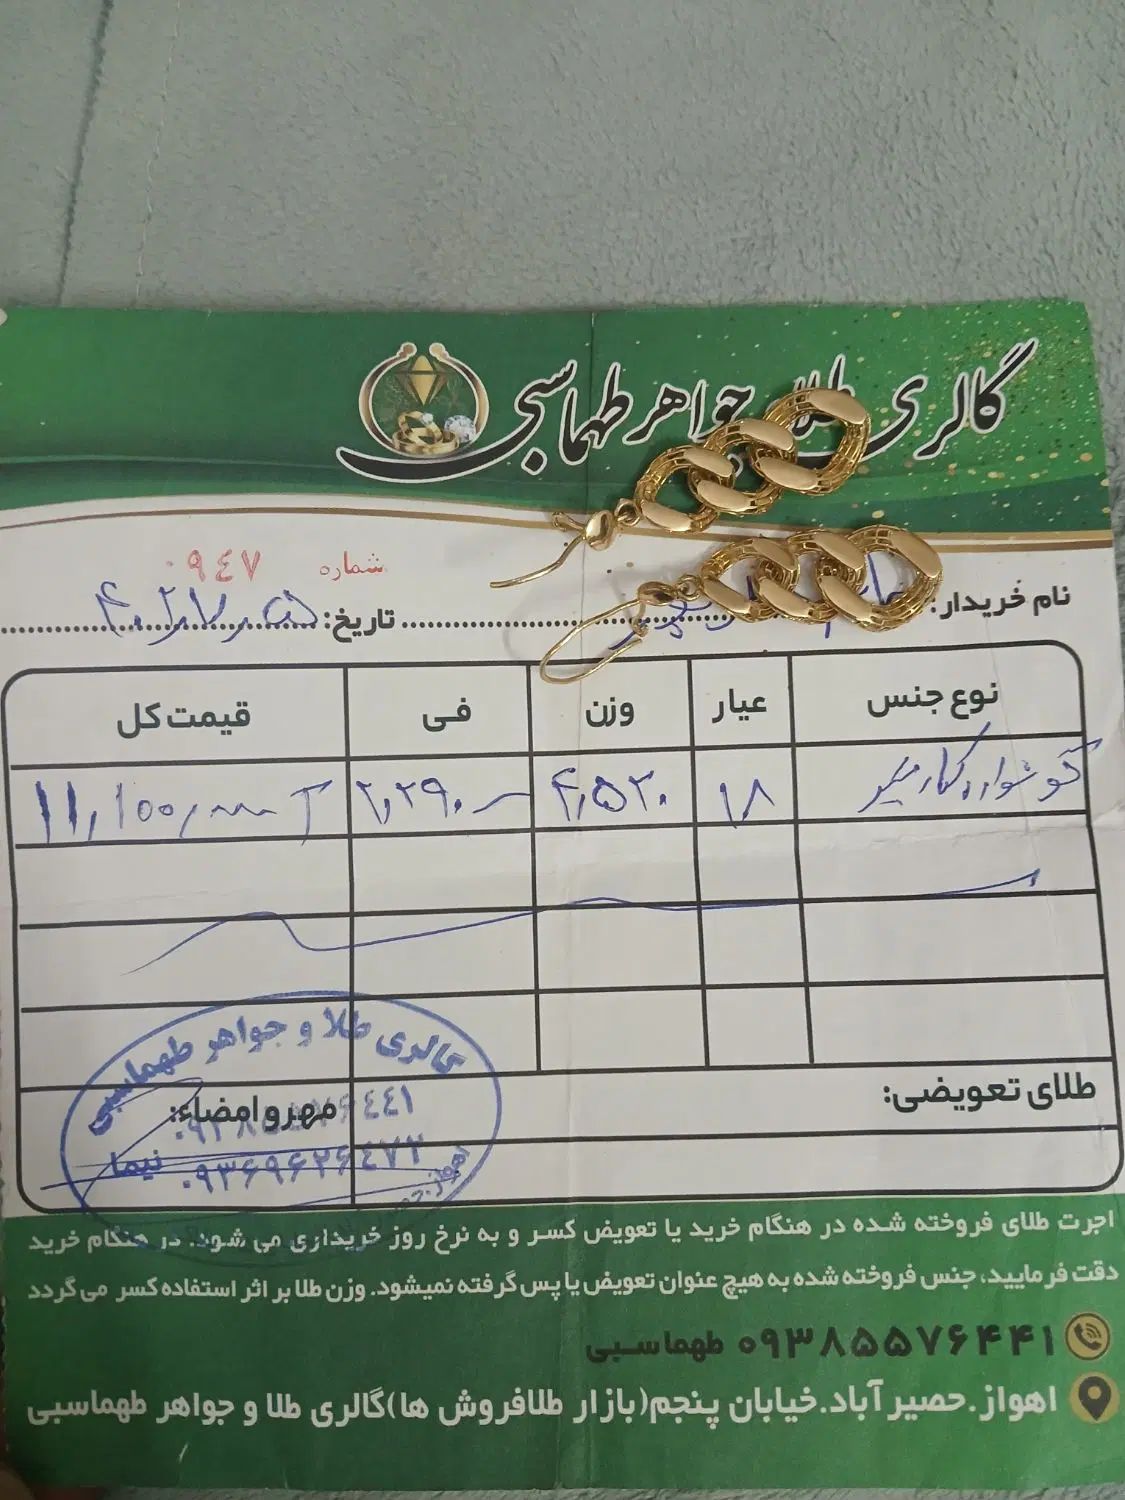 گالری طلا و جواهر طهماسبی
شماره ۰۹۴۷
نام خریدار:
تاریخ: ۴۰۲,۷,۰۵
نوع جنس عیار وزن فی قیمت کل
گوشواره کارمیر ۱۸ ۴,۵۲۰ ۲,۲۹۰,۰۰۰ ۱۱,۱۰۰,۰۰۰ ت
گالری طلا و جواهر طهماسبی
طلای تعویضی:
مهر و امضاء:
۰۹۳۸۵۵۷۶۴۴۱
نیما ۰۹۳۶۹۶۲۶۴۷۲
اجرت طلای فروخته شده در هنگام خرید یا تعویض کسر و به نرخ روز خریداری می شود. در هنگام خرید
دقت فرمایید، جنس فروخته شده به هیچ عنوان تعویض یا پس گرفته نمیشود. وزن طلا بر اثر استفاده کسر می گردد
۰۹۳۸۵۵۷۶۴۴۱ طهماسبی
اهواز.حصیرآباد.خیابان پنجم(بازار طلافروش ها)گالری طلا و جواهر طهماسبی